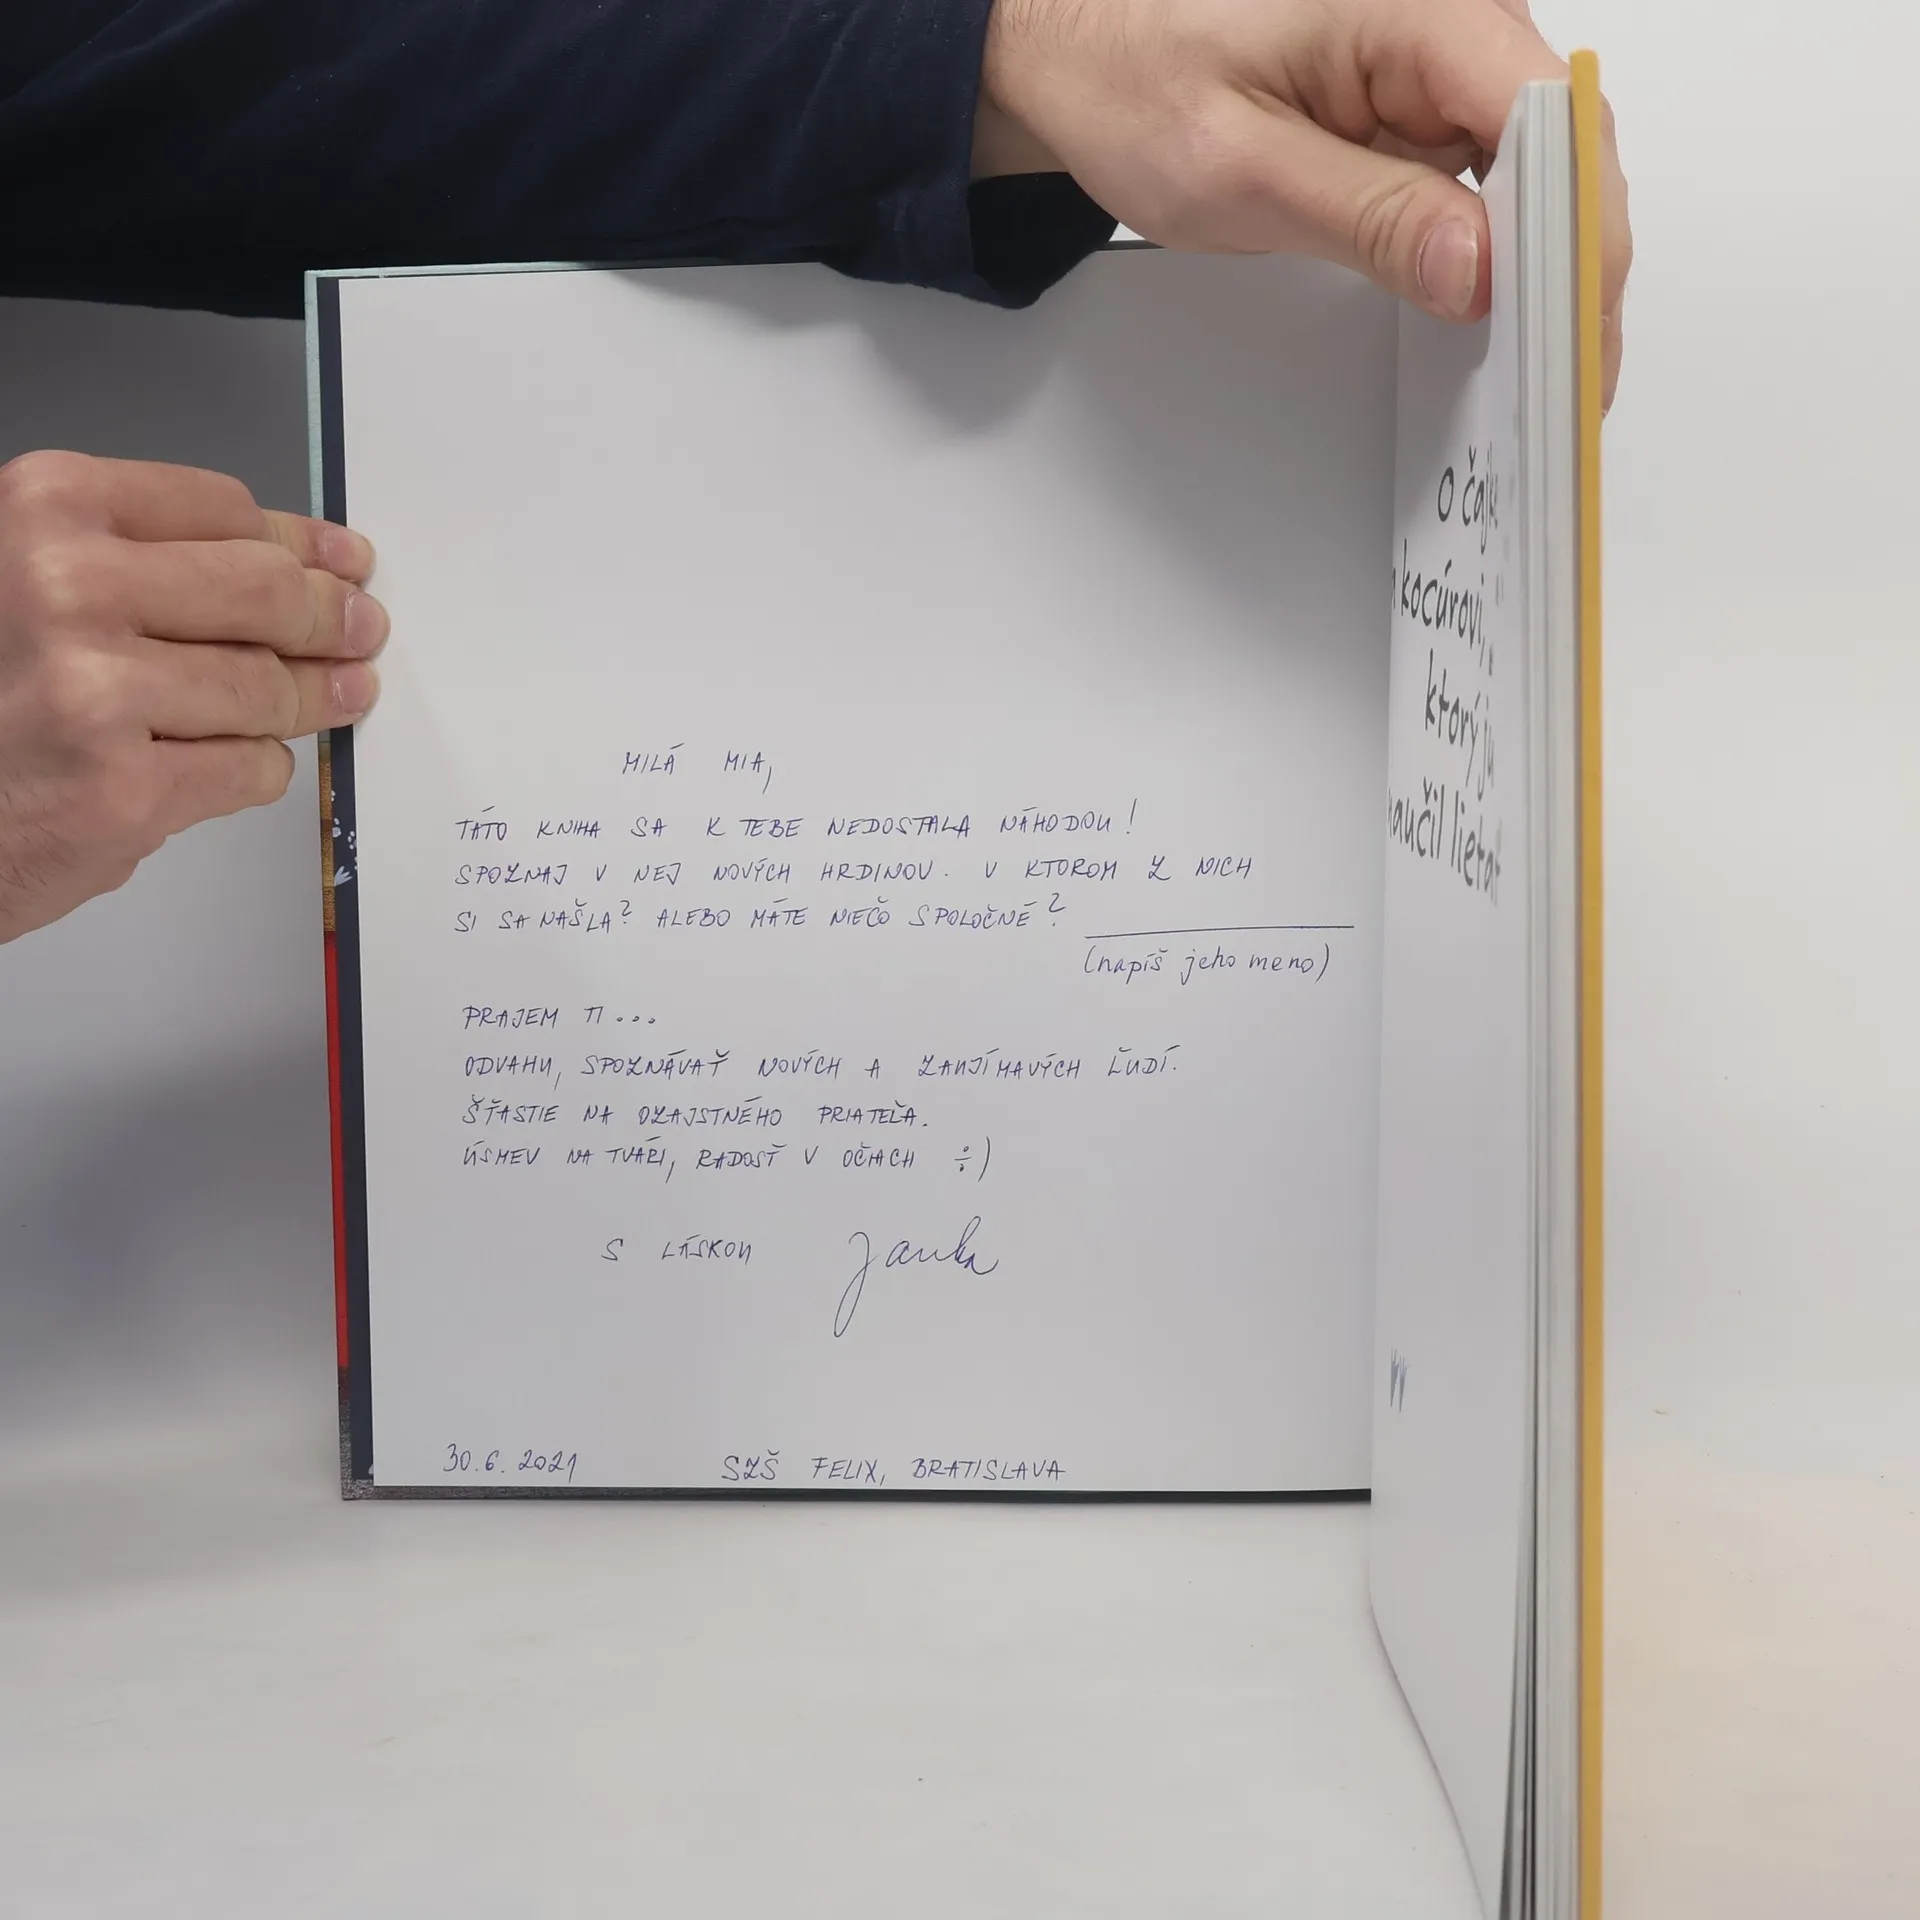 MILÁ MIA,
TÁTO KNIHA SA K TEBE NEDOSTALA NÁHODOU!
SPOZNAJ V NEJ NOVÝCH HRDINOV. V KTOROM Z NICH
SI SA NAŠLA? ALEBO MÁTE NIEČO SPOLOČNÉ?
(napíš jeho meno)
PRAJEM TI...
ODVAHU, SPOZNÁVAŤ NOVÝCH A ZAUJÍMAVÝCH ĽUDÍ.
ŠŤASTIE NA OZAJSTNÉHO PRIATEĽA.
ÚSMEV NA TVÁRI, RADOSŤ V OČIACH :)
S LÁSKOU Janka
30.6.2021 SZŠ FELIX, BRATISLAVA
O
kocúrovi,
ktorý ju
naučil lietať